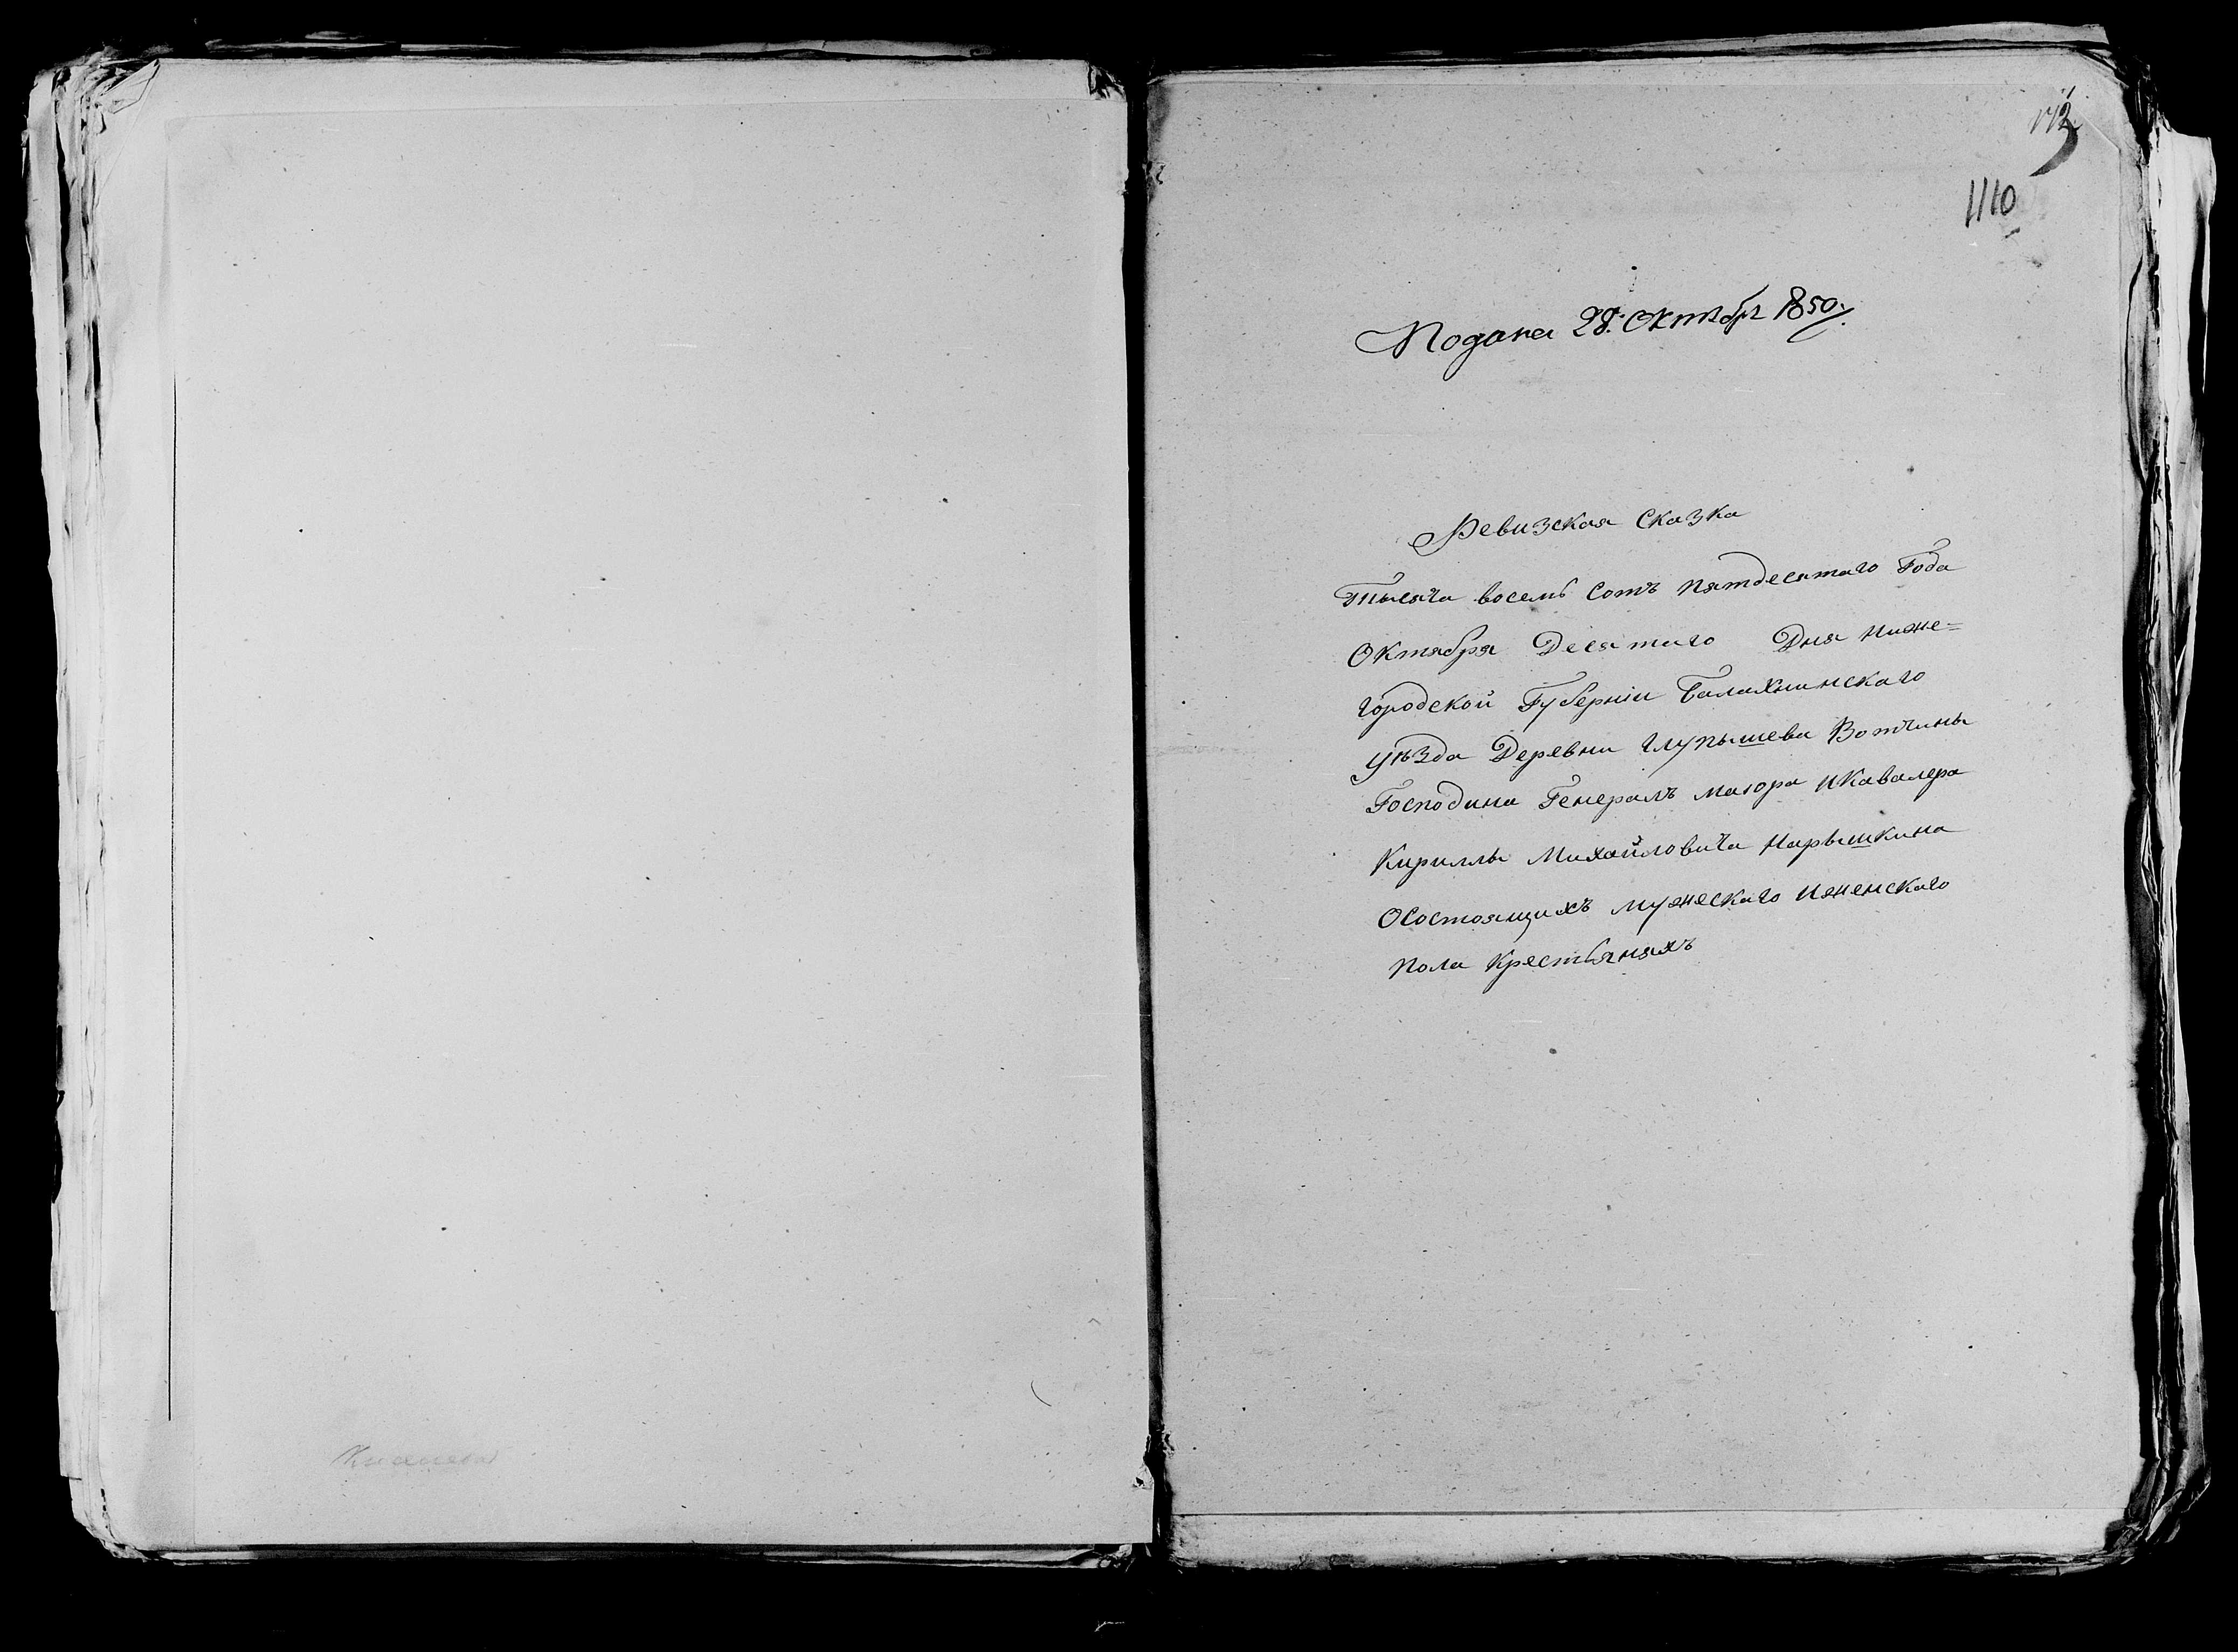 1110
Подана 28. Октябр 1850 г.
Ревизская Сказка
Тысяча восемь Сотъ пятдесятаго Года
Октября Десятаго Дня Ниже=
городской Губерніи Балахнинскаго
уѣзда Деревни Глупышева Вотчины
Господина Генералъ маіора и Кавалера
Кириллы Михайловича Нарышкина
О состоящихъ мужескаго и женскаго
пола Крестьянахъ